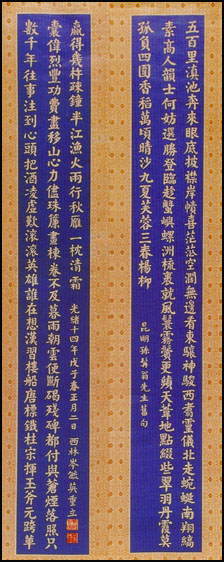 五百里滇池奔來眼底披襟岸幘喜茫茫空闊無邊看東驤神駿西翥靈儀北走蜿蜒南翔縞
素高人韻士何妨選勝登臨趁蟹嶼螺洲梳裹就風鬟霧鬢更蘋天葦地點綴些翠羽丹霞莫
孤負四圍香稻萬頃晴沙九夏芙蓉三春楊柳
昆明孫髯翁先生舊句
數千年往事注到心頭把酒凌虛歎滾滾英雄誰在想漢習樓船唐標鐵柱宋揮玉斧元跨革
囊偉烈豐功費盡移山心力儘珠簾畫棟卷不及暮雨朝雲便斷碣殘碑都付與蒼煙落照只
贏得幾杵疎鐘半江漁火兩行秋雁一枕清霜
光緒十四年戊子春正月二日 西林岑毓英重立